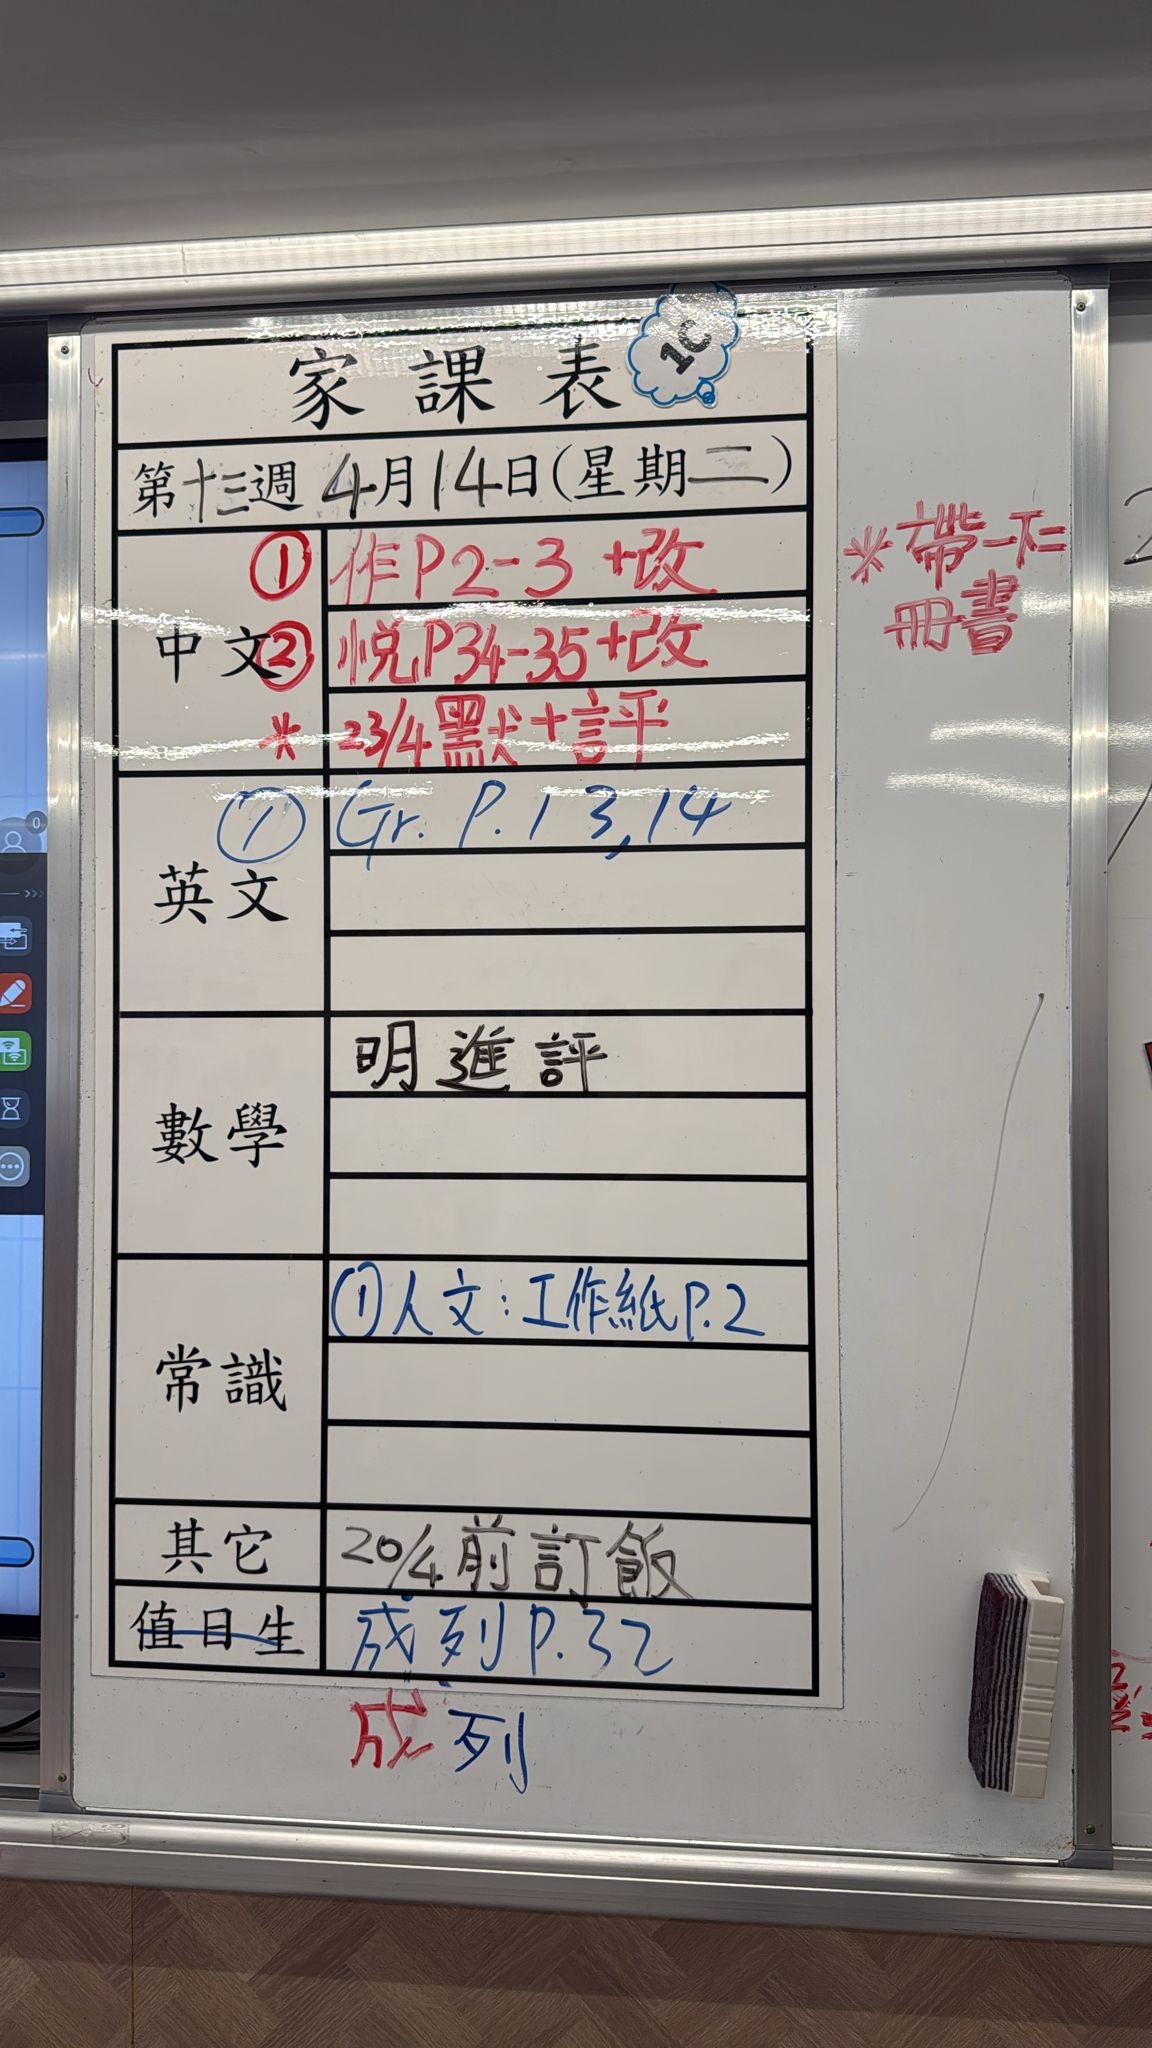 家課表 1C
第十三週 4月14日(星期二)
中文
① 作P2-3 +改
② 悅P34-35+改
* 23/4默+評
英文
① Gr. P.13,14
數學
明進評
常識
①人文:工作紙P.2
其它
20/4前訂飯
值日生
成列P.32
成列
*帶一下=
冊書
0